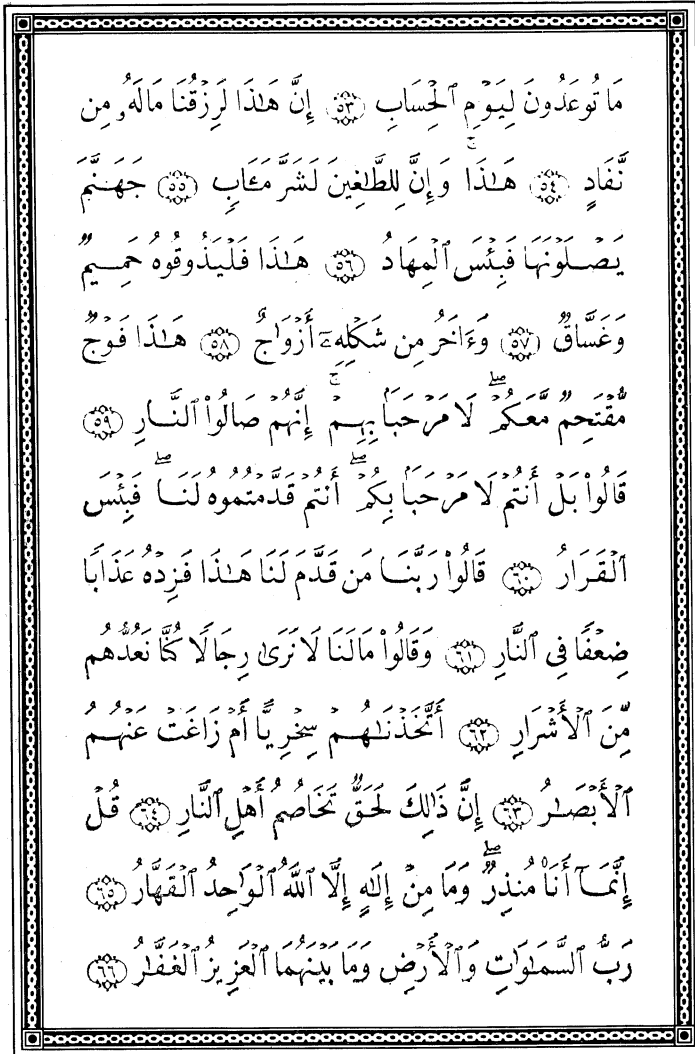 مَا تُوعَدُونَ لِيَوۡمِ ٱلۡحِسَابِ ٥٣ إِنَّ هَٰذَا لَرِزۡقُنَا مَالَهُۥ مِن
نَّفَادٍ ٥٤ هَٰذَاۚ وَإِنَّ لِلطَّٰغِينَ لَشَرَّ مَـَٔابٖ ٥٥ جَهَنَّمَ
يَصۡلَوۡنَهَا فَبِئۡسَ ٱلۡمِهَادُ ٥٦ هَٰذَا فَلۡيَذُوقُوهُ حَمِيمٞ
وَغَسَّاقٞ ٥٧ وَءَاخَرُ مِن شَكۡلِهِۦٓ أَزۡوَٰجٌ ٥٨ هَٰذَا فَوۡجٞ
مُّقۡتَحِمٞ مَّعَكُمۡۖ لَا مَرۡحَبَۢا بِهِمۡۚ إِنَّهُمۡ صَالُواْ ٱلنَّارِ ٥٩
قَالُواْ بَلۡ أَنتُمۡ لَا مَرۡحَبَۢا بِكُمۡۖ أَنتُمۡ قَدَّمۡتُمُوهُ لَنَاۖ فَبِئۡسَ
ٱلۡقَرَارُ ٦٠ قَالُواْ رَبَّنَا مَن قَدَّمَ لَنَا هَٰذَا فَزِدۡهُ عَذَابٗا
ضِعۡفٗا فِي ٱلنَّارِ ٦١ وَقَالُواْ مَالَنَا لَا نَرَىٰ رِجَالٗا كُنَّا نَعُدُّهُم
مِّنَ ٱلۡأَشۡرَارِ ٦٢ أَتَّخَذۡنَٰهُمۡ سِخۡرِيًّا أَمۡ زَاغَتۡ عَنۡهُمُ
ٱلۡأَبۡصَٰرُ ٦٣ إِنَّ ذَٰلِكَ لَحَقّٞ تَخَاصُمُ أَهۡلِ ٱلنَّارِ ٦٤ قُلۡ
إِنَّمَآ أَنَا۠ مُنذِرٞۖ وَمَا مِنۡ إِلَٰهٍ إِلَّا ٱللَّهُ ٱلۡوَٰحِدُ ٱلۡقَهَّارُ ٦٥
رَبُّ ٱلسَّمَٰوَٰتِ وَٱلۡأَرۡضِ وَمَا بَيۡنَهُمَا ٱلۡعَزِيزُ ٱلۡغَفَّٰرُ ٦٦